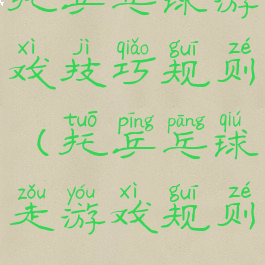 托乒乓球游
xì jì qiǎo guī zé
戏技巧规则
tuō pīng pāng qiú
(托乒乓球
zǒu yóu xì guī zé
走游戏规则